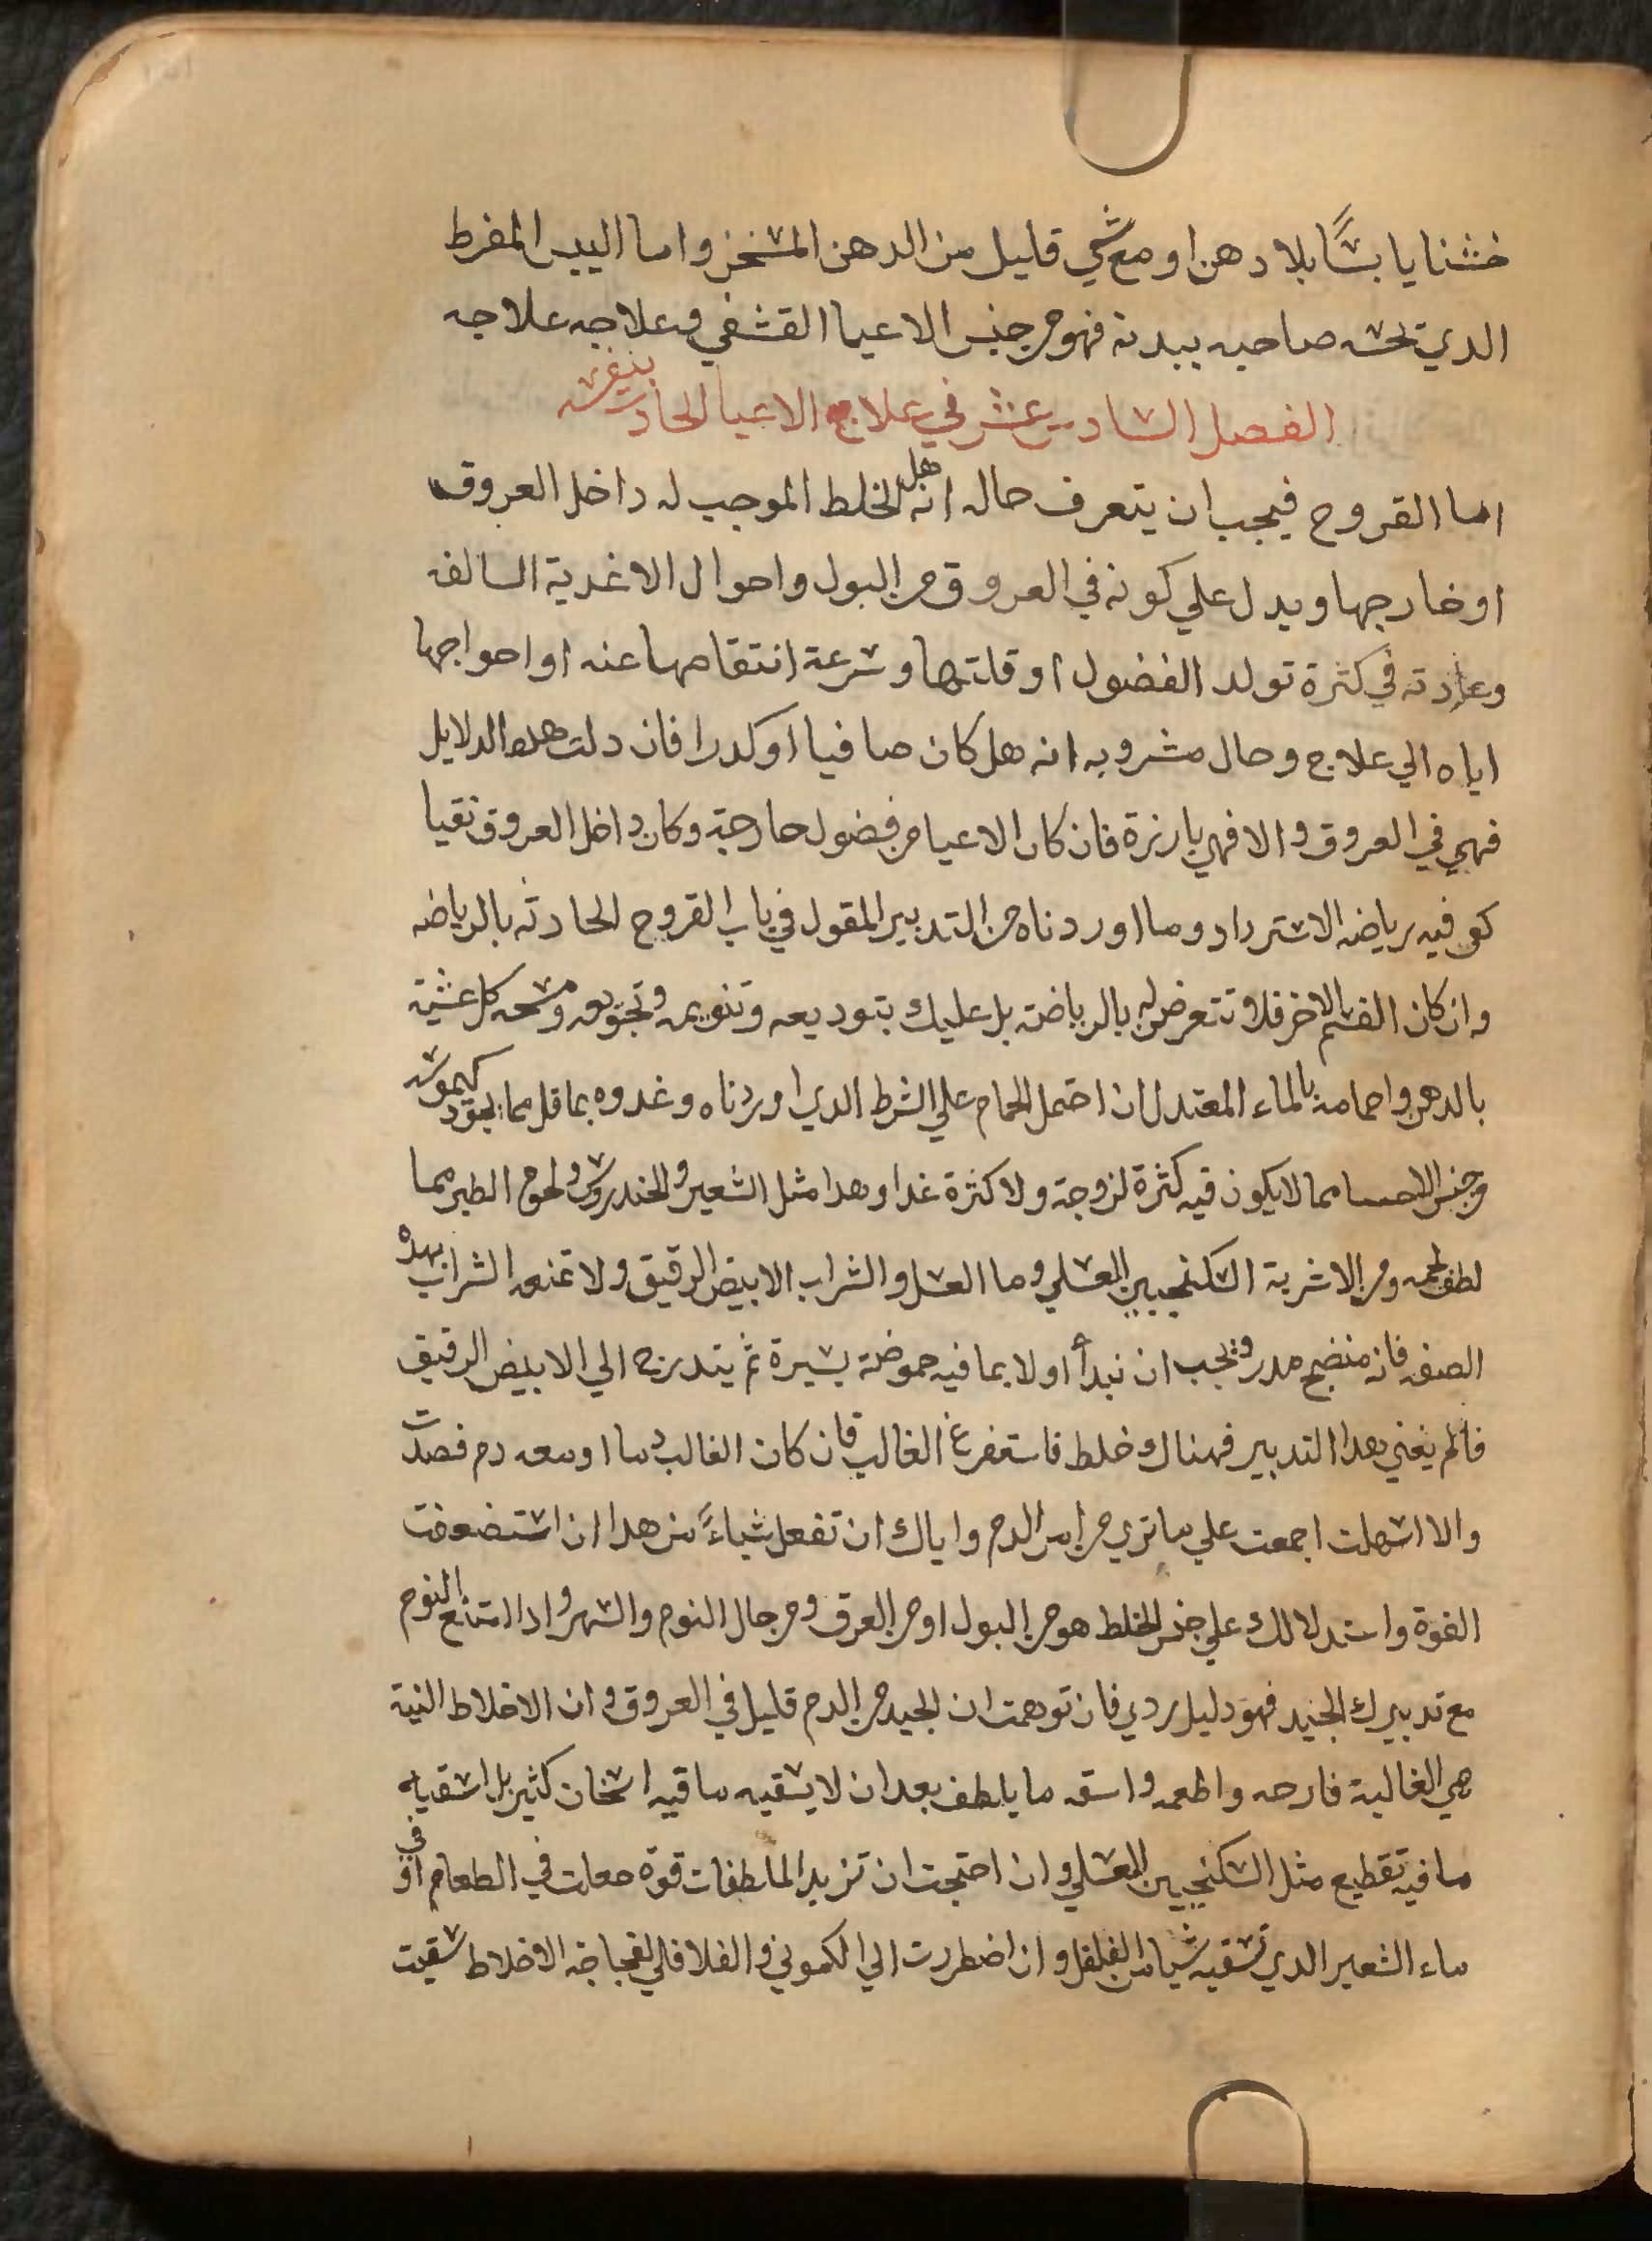 خشنا يابسًا بلا دهن او مع شي قليل من الدهن المسخن واما اليبس المفرط
الدي يحسه صاحبه ببدنه فهو من جنس الاعيا القشفي وعلاجه علاجه
الفصل السادس عشر في علاج الاعيا الحادث بنفسه
اما القروح فيجب ان يتعرف حاله انه هل الخلط الموجب له داخل العروق
او خارجها ويدل علي كونه في العروق من البول واحوال الاغدية السالفه
وعادته في كثرة تولد الفضول او قلتها وسرعة انتقاصها عنه او احواجها
اياه الي علاج وحال مشروبه انه هل كان صافيا او كدرا فان دلت هده الدلايل
فهي في العروق والا فهي بارزة فان كان الاعيا من فضول خارجة وكان داخل العروق نقيا
كفي فيه رياضه الاسترداد وما اوردناه من التدبير المقول في باب القروح الحادثه بالرياضه
وان كان القسم الاخر فلا تتعرض له بالرياضة بل عليك بتوديعه وتنويمه وتجويعه ومسحه كل عشية
بالدهن واحمامه بالماء المعتدل ان احتمل الحمام علي الشرط الدي اوردناه وغدوه بما قل مما يجود كيموسه
من جنس الاحسا مما لا يكون فيه كثرة لزوجة ولا كثرة غدا وهدا مثل الشعير والخندروس ولحوم الطير مما
لطف لحمه ومن الاشربة السكنجبين العسلي وما العسل والشراب الابيض الرقيق ولا تمنعه الشراب بهده
الصفه فانه منضج مدر ويجب ان نبدأ اولا بما فيه حموضة يسيرة ثم يتدرج الي الابيض الرقيق
فان لم يغني هدا التدبير فهناك خلط فاستفرغ الغالب فان كان الغالب دما او معه دم فصدت
والا اسهلت اجمعت علي ما تري من امر الدم واياك ان تفعل شياءً من هدا ان استضعفت
القوة واستدلالك علي جنس الخلط هو من البول او من العرق ومن حال النوم والسهر وادا امتنع النوم
مع تدبيرك الجيد فهو دليل ردي فان توهمت ان الجيد من الدم قليل في العروق وان الاخلاط النية
هي الغالبة فارحه واطعمه واسقه ما يلطف بعد ان لا يسقيه ما فيه اسخان كثير بل اسقيه
ما فيه تقطيع مثل السكنجبين العسلي وان احتجت ان تزيد الملطفات قوة جعلت في الطعام او في
ماء الشعير الدي تسقيه شيا من الفلفل وان اضطررت الي الكموني والفلافلي لفجاجة الاخلاط سقيت